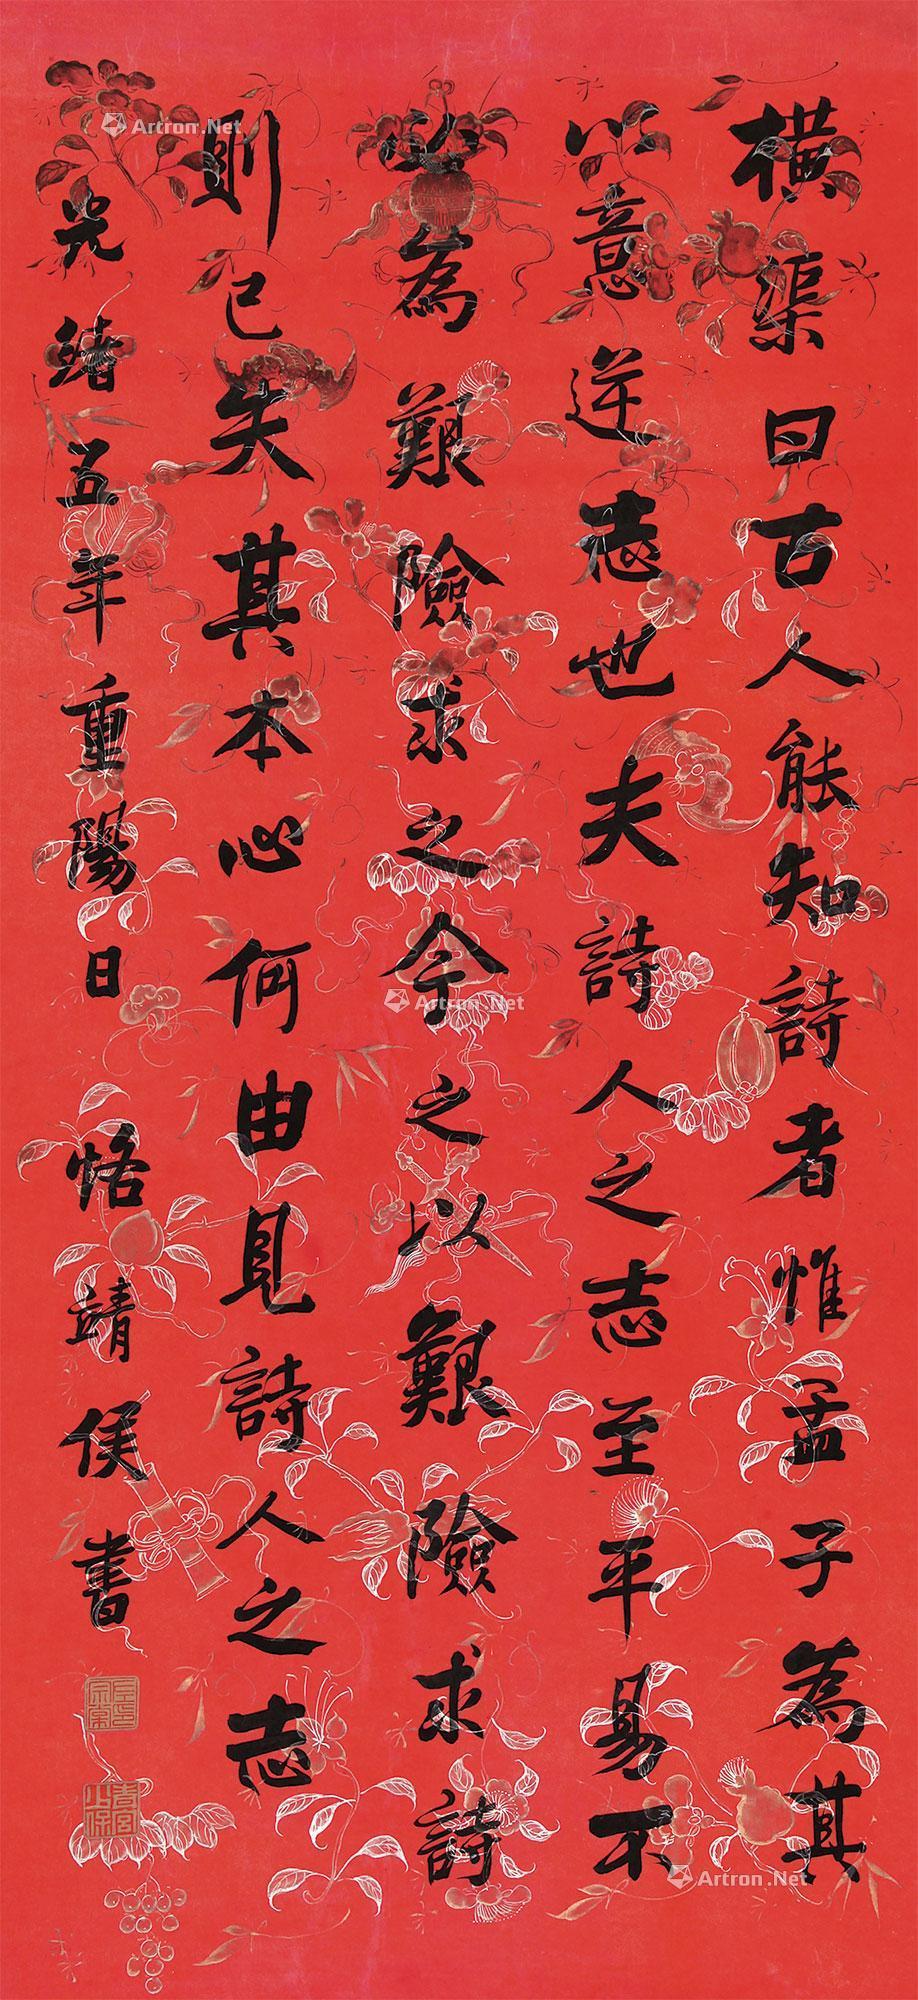 橫渠曰古人能知詩者惟孟子為其
以意逆志也夫詩人之志至平易不
必為艱險求之今之以艱險求詩
則已失其本心何由見詩人之志
光緒五年重陽日 恪靖侯書
Artron.Net
Artron.Net
Artron.Net